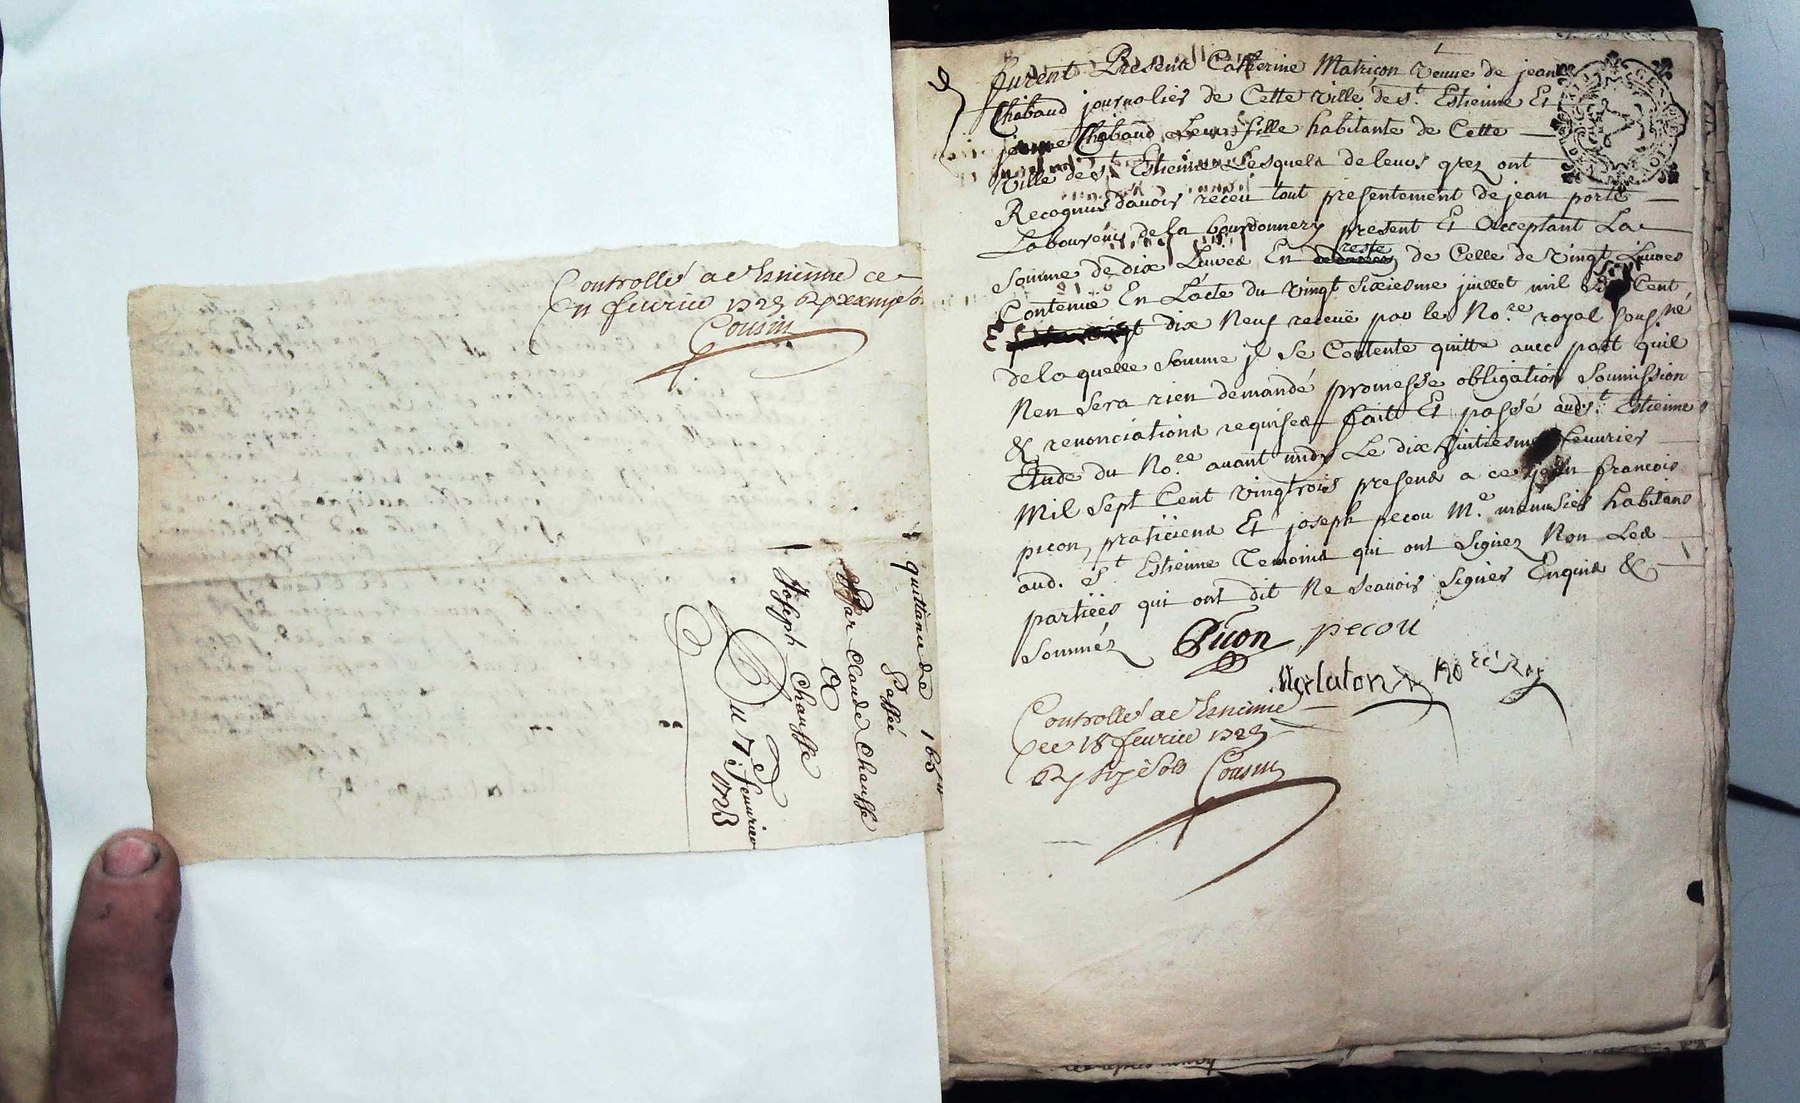 Controllé a St Estienne ce
en feurier 1723
Cousin
quittance de 165
Passée
Par Claude Chauffe
A
Joseph Chauffe
Du 7e feurier
1723
furent Presens Catherine Matricon veuue de jean
Chabaud journalier de Cette ville de st. Estienne Et
jeanne Chabaud Leur fille habitante de Cette
ville de st Estienne Lesquels de leurs grez ont
Recognus d'avoir receu tout presentement de jean porte
Laboureur de la bourdonnery present Et Acceptant La
somme de dix Liures En reste de Celle de vingt Liures
Contenuë En L'acte du vingt sixiesme juillet mil sept Cent
dix Neuf receuë par le No.re royal sousné
de la quelle somme jl se Contente quitte auec pact quil
Nen sera rien demandé promesse obligation soumission
& renonciations requises fait Et passé aud st. Estienne
Etude du No.re auant midy Le dix huitiesme feuurier
Mil sept Cent vingtrois presens a ce jean francois
picon, praticiens Et joseph pecou M.e menusier habitans
aud. st Estienne Temoins qui ont signez Non Les
partiées qui ont dit Ne scauoir signer Enquis &
sommez
Picon pecou
No.re Roy
Controllé a St Estienne
ce 18 feurier 1723
Cousin